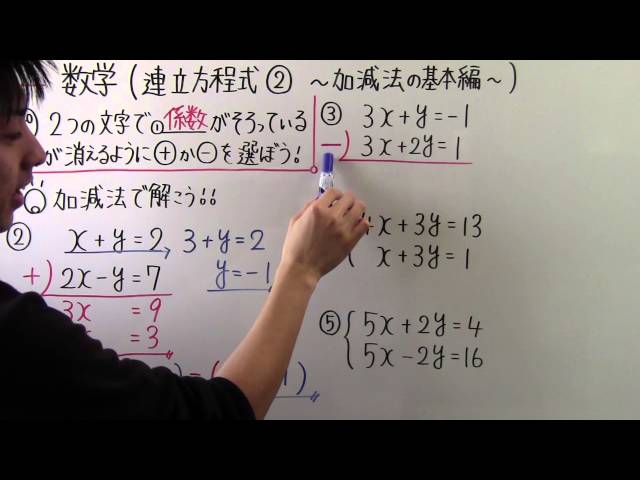 数学(連立方程式② ～加減法の基本編～)
2つの文字で、係数がそろっている
が消えるように+か−を選ぼう!
加減法で解こう!!
② x+y=2 3+y=2
+) 2x-y=7 y=-1
3x =9
=3
=( 1)
③ 3x+y=-1
−) 3x+2y=1
x+3y=13
x+3y=1
⑤ 5x+2y=4
5x-2y=16